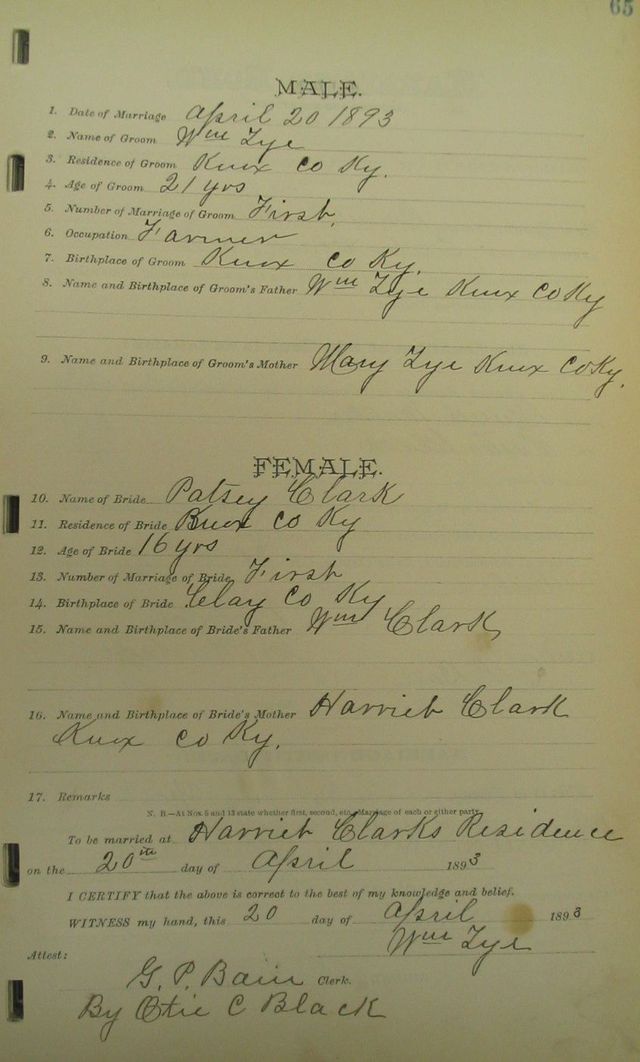 65
MALE.
1. Date of Marriage April 20 1893
2. Name of Groom Wm Lye
3. Residence of Groom Knox Co Ky.
4. Age of Groom 21 yrs
5. Number of Marriage of Groom First,
6. Occupation Farmer
7. Birthplace of Groom Knox Co Ky.
8. Name and Birthplace of Groom's Father Wm Lye Knox Co Ky
9. Name and Birthplace of Groom's Mother Mary Lye Knox Co Ky.
FEMALE.
10. Name of Bride Patsey Clark
11. Residence of Bride Knox Co Ky
12. Age of Bride 16 yrs
13. Number of Marriage of Bride First
14. Birthplace of Bride Clay Co Ky
15. Name and Birthplace of Bride's Father Wm Clark
16. Name and Birthplace of Bride's Mother Harriet Clark
Knox Co Ky.
17. Remarks
N. B.—At Nos. 5 and 13 state whether first, second, etc., Marriage of each or either party.
To be married at Harriet Clarks Residence
on the 20th day of April 1893
I CERTIFY that the above is correct to the best of my knowledge and belief.
WITNESS my hand, this 20 day of April 1893
Wm Lye
Attest:
G. P. Bain Clerk.
By Otie C Black